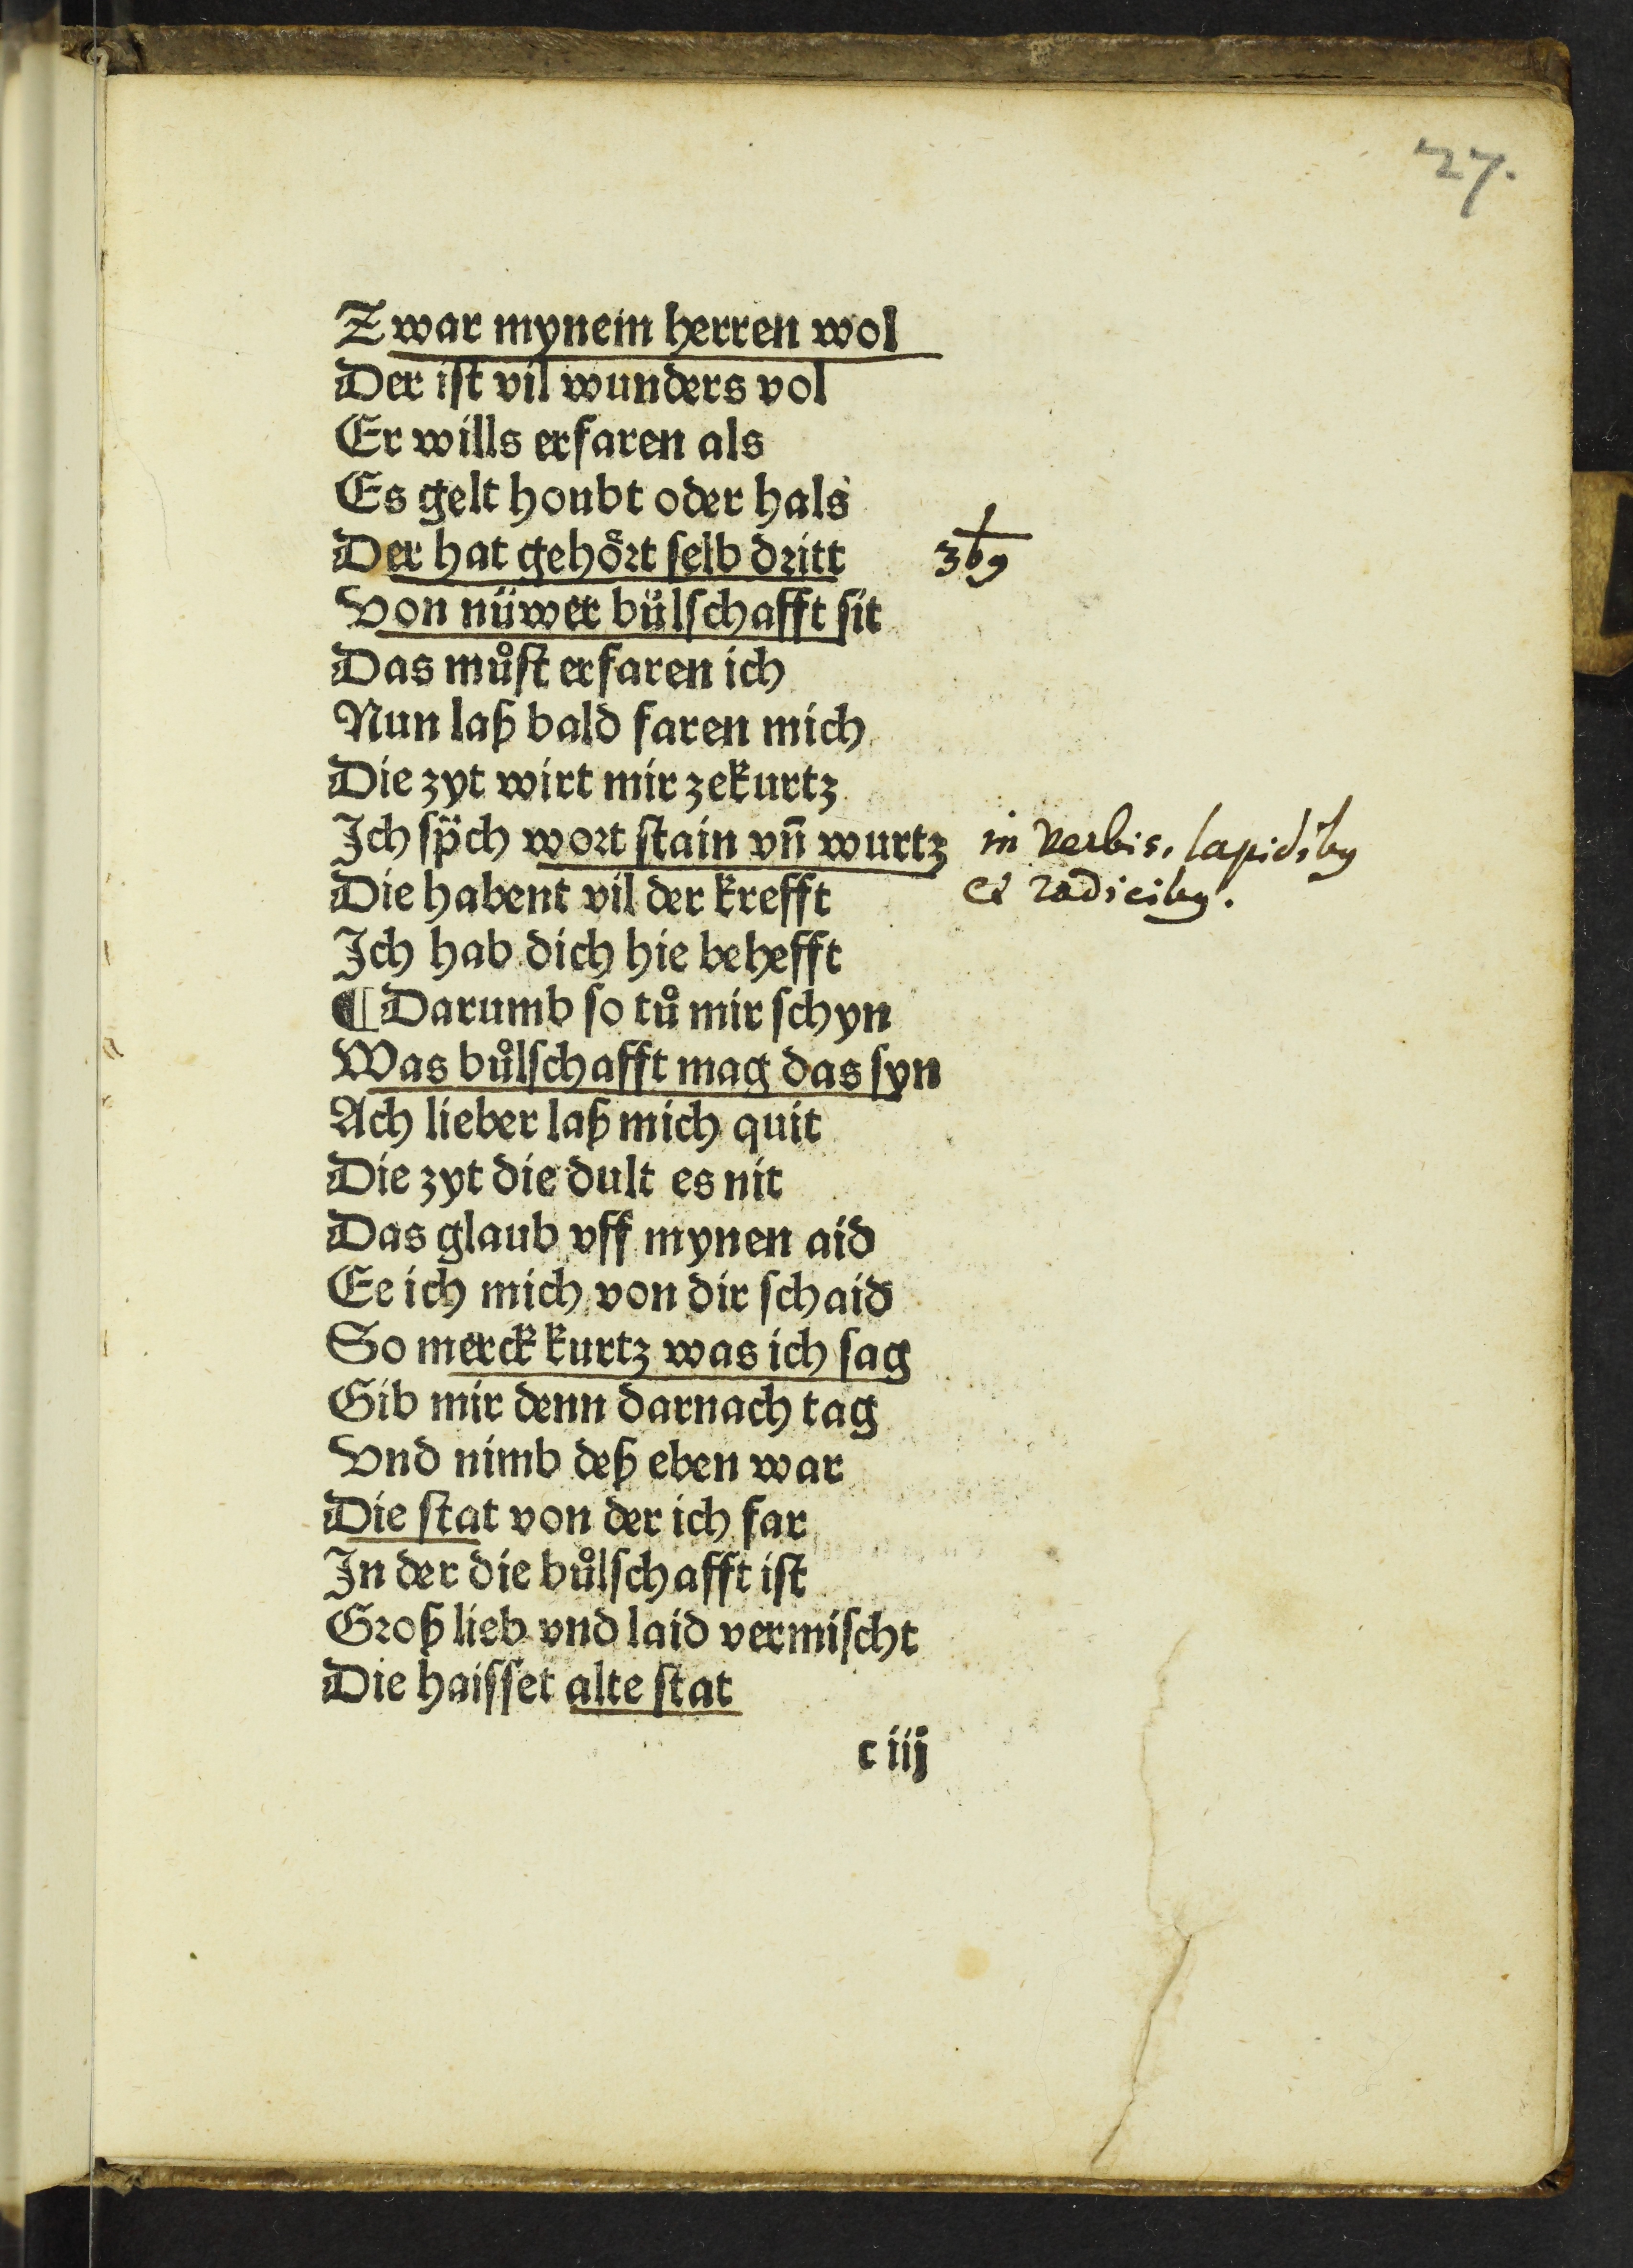 27.
Zwar mynem herren wol
Der ist vil wunders vol
Er wills erfaren als
Es gelt houbt oder hals
Der hat gehört selb dritt
Von nüwer bülschafft sit
Das můst erfaren ich
Nun laß bald faren mich
Die zyt wirt mir zekurtz
Ich sp̈ch wort stain vn̄ wurtz in verbis, lapidibꝰ
Die habent vil der krefft et radicibꝰ.
Ich hab dich hie behefft
¶ Darumb so tů mir schyn
Was bůlschafft mag das syn
Ach lieber laß mich quit
Die zyt die dult es nit
Das glaub vff mynen aid
Ee ich mich von dir schaid
So merck kurtz was ich sag
Gib mir denn darnach tag
Vnd nimb deß eben war
Die stat von der ich far
In der die bůlschafft ist
Groß lieb vnd laid vermischt
Die haisset alte stat
c iij